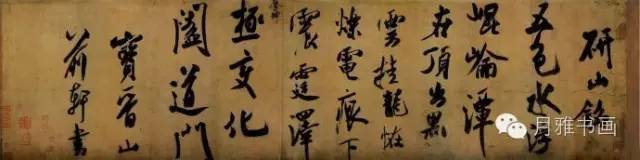 研山銘
五色水浮
崐崘潭
在頂出黑
雲挂龍恠
爍電痕下
震霆澤
極變化
闔道門
寶晋山
前軒書
月雅书画